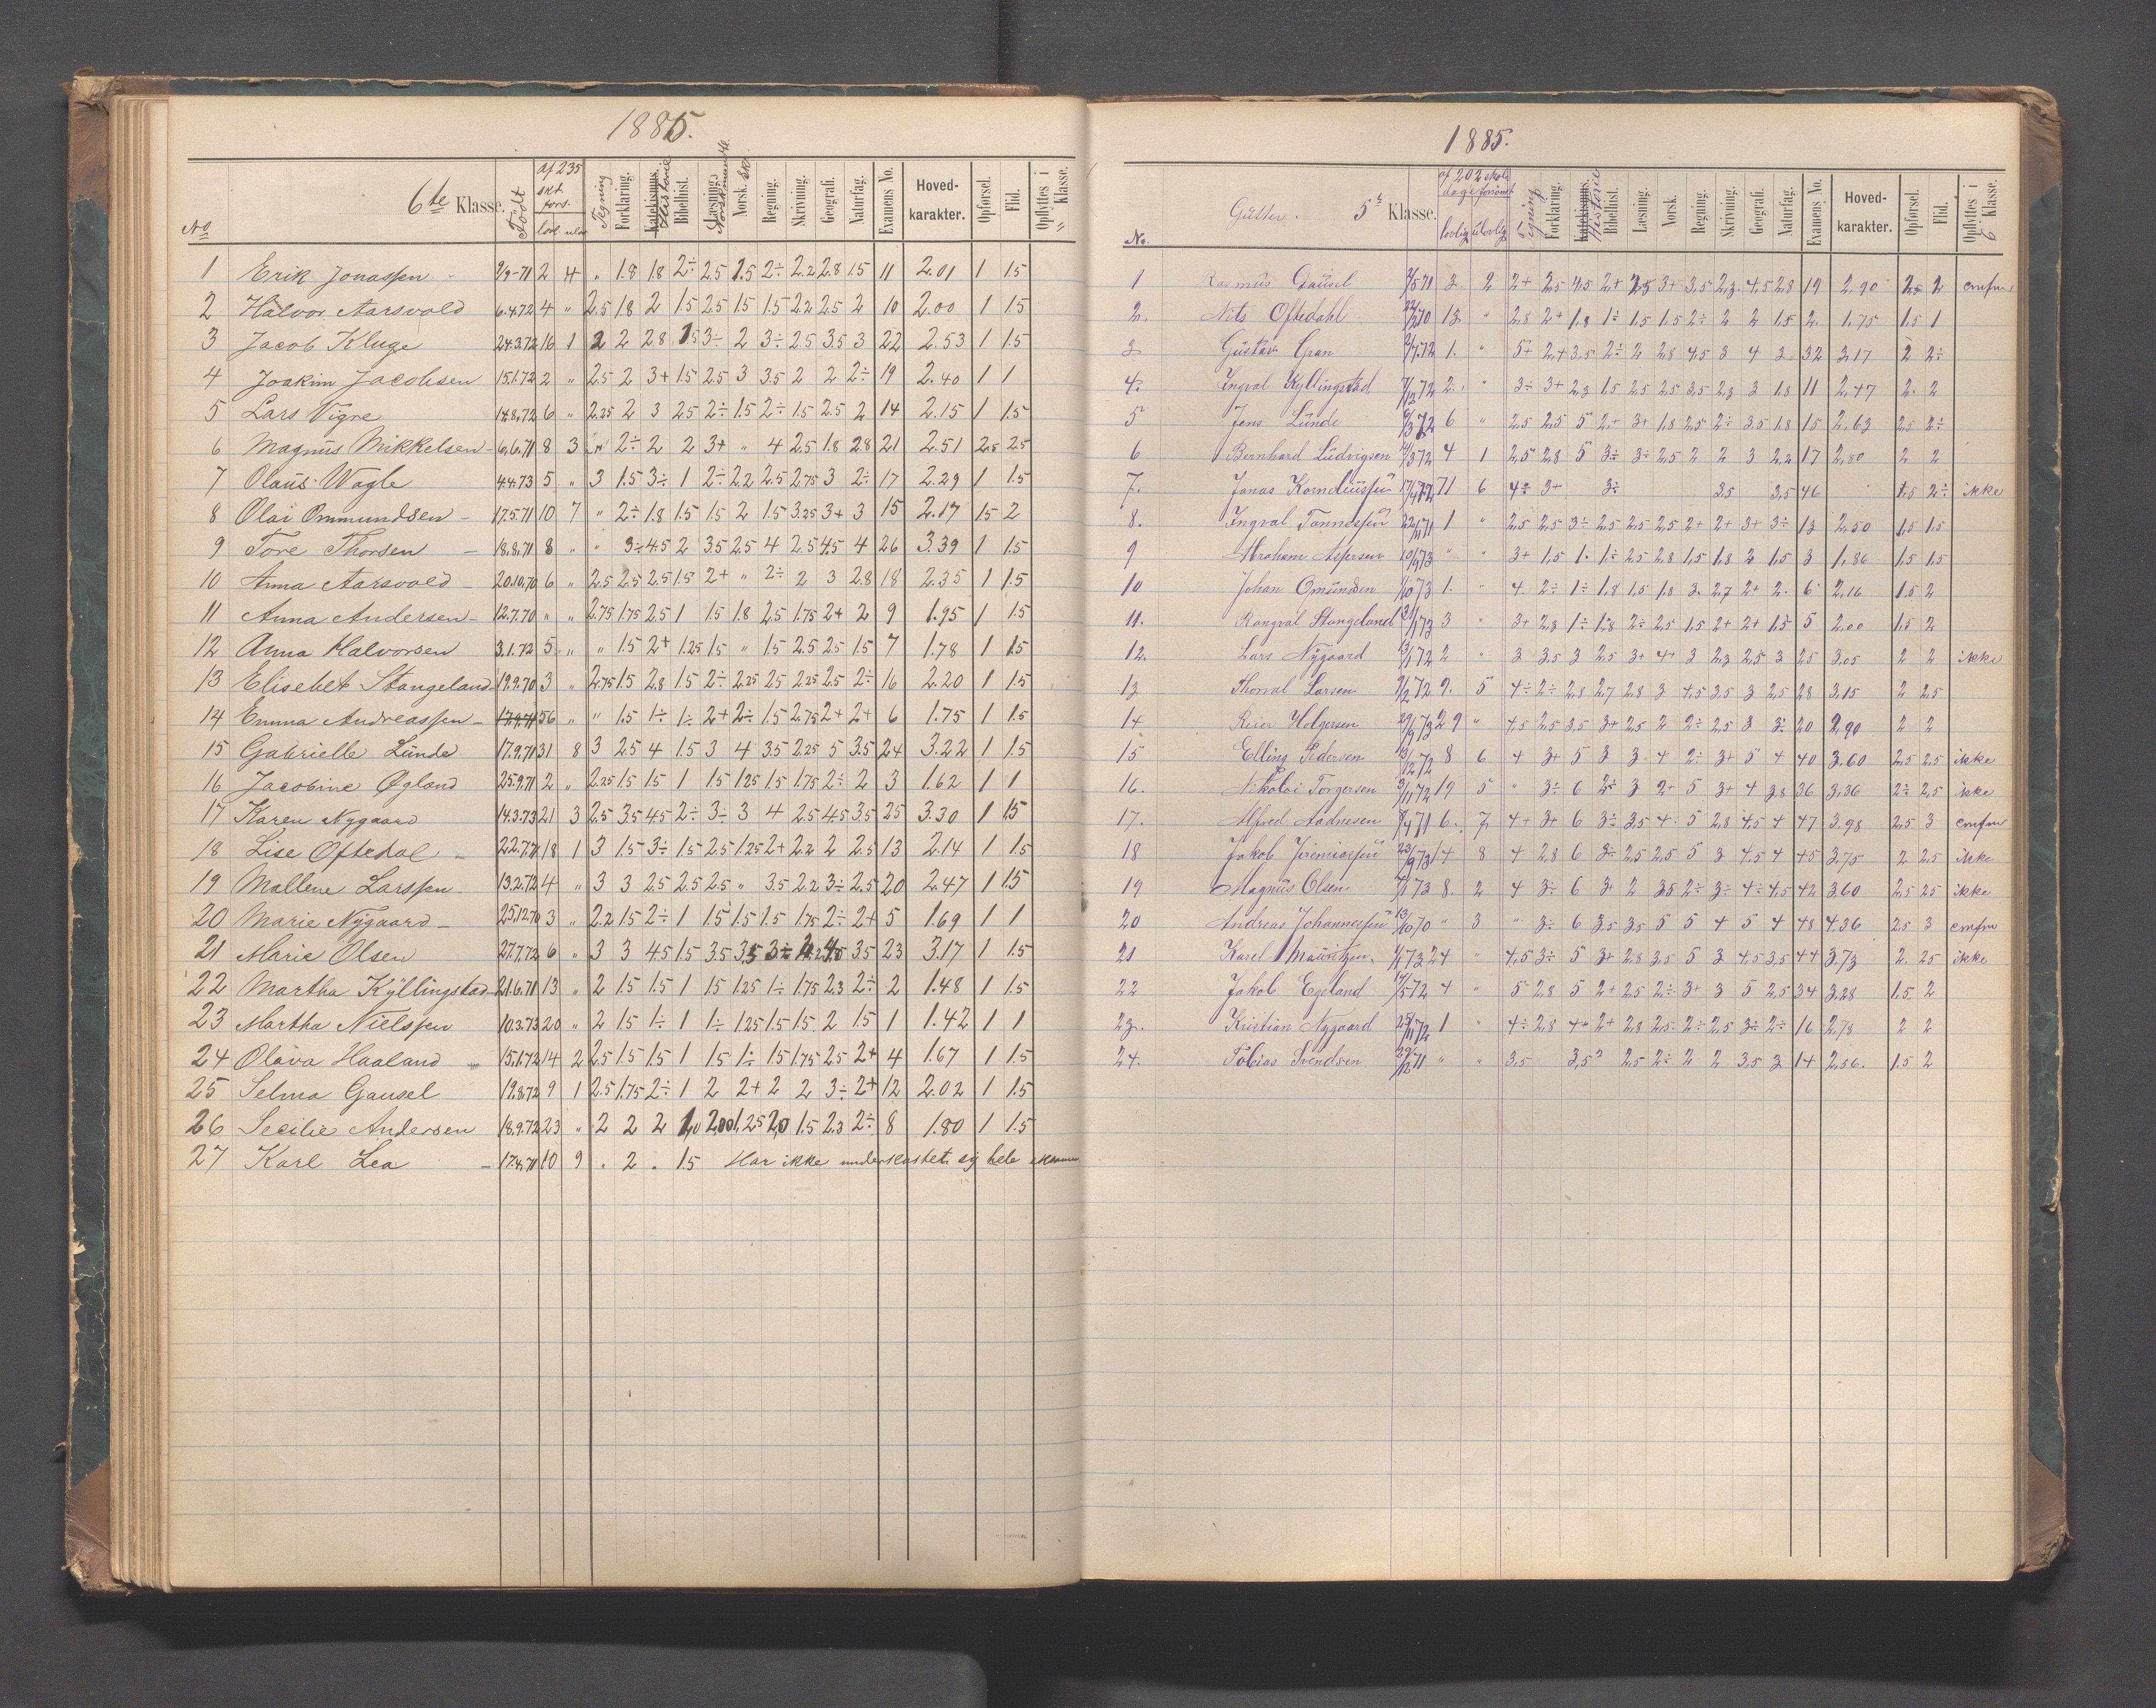 1885.
No 6te Klasse. Født af 235 skd. fors. lovl. ulov. Tegning Forklaring. Katekismus. Historie Bibelhist. Læsning. Norsk mundtl. Norsk. skr. Regning. Skrivning. Geografi. Naturfag. Examens No. Hoved-karakter. Opførsel. Flid. Opflyttes i „ Klasse.
1 Erik Jonassen 9/9-71 2 4 „ 1.8 1.8 2÷ 2.5 1.5 2÷ 2.2 2.8 1.5 11 2.01 1 1.5
2 Halvor Aarsvold 6.4.72 4 „ 2.5 1.8 2 1.5 2.5 1.5 1.5 2.2 2.5 2 10 2.00 1 1.5
3 Jacob Kluge 24.3.72 16 1 2 2 2.8 1.5 3÷ 2 3÷ 2.5 3.5 3 22 2.53 1 1.5
4 Joakim Jacobsen 15.1.72 2 „ 2.5 2 3+ 1.5 2.5 3 3.5 2 2 2÷ 19 2.40 1 1
5 Lars Vigre 14.8.72 6 „ 2.25 2 3 2.5 2÷ 1.5 2÷ 1.5 2.5 2 14 2.15 1 1.5
6 Magnus Mikkelsen 6.6.71 8 3 2÷ 2 2 3+ „ 4 2.5 1.8 2.8 21 2.51 2.5 2.5
7 Olaus Wagle 4.4.73 5 „ 3 1.5 3÷ 1 2÷ 2.2 2.5 2.75 3 2÷ 17 2.29 1 1.5
8 Olai Ommundsen 17.5.71 10 7 „ 2÷ 1.8 1.5 1.5 2 1.5 3.25 3+ 3 15 2.17 1.5 2
9 Tore Thorsen 18.8.71 8 „ „ 3÷ 4.5 2 3.5 2.5 4 2.5 4.5 4 26 3.39 1 1.5
10 Anna Aarsvold 20.10.70 6 „ 2.5 2.5 2.5 1.5 2+ „ 2÷ 2 3 2.8 18 2.35 1 1.5
11 Anna Andersen 12.7.70 „ „ 2.75 1.75 2.5 1 1.5 1.8 2.5 1.75 2+ 2 9 1.95 1 1.5
12 Anna Halvorsen 3.1.72 5 „ „ 1.5 2+ 1.25 1.5 „ 1.5 2.5 2.5 1.5 7 1.78 1 1.5
13 Elisebet Stangeland 19.9.70 3 „ 2.75 1.5 2.8 1.5 2÷ 2.25 2.5 2.25 2.5 2÷ 16 2.20 1 1.5
14 Emma Andreassen 17.9.71 56 „ „ 1.5 1÷ 1÷ 2+ 2÷ 1.5 2.75 2+ 2+ 6 1.75 1 1.5
15 Gabrielle Lunde 17.9.71 31 8 3 2.5 4 1.5 3 4 3.5 2.25 5 3.5 24 3.22 1 1.5
16 Jacobine Øgland 25.9.71 2 „ 2.25 1.5 1.5 1 1.5 1.25 1.5 1.75 2÷ 2 3 1.62 1 1
17 Karen Nygaard 14.3.73 21 3 2.5 3.5 4.5 2÷ 3÷ 3 4 2.5 4.5 3.5 25 3.30 1 1.5
18 Lise Oftedal 22.7.71 18 1 3 1.5 3÷ 1.5 2.5 1.25 2+ 2.2 2 2.5 13 2.14 1 1.5
19 Mallene Larssen 13.2.72 4 „ 3 3 2.5 2.5 2.5 „ 3.5 2.2 3÷ 2.5 20 2.47 1 1.5
20 Marie Nygaard 25.12.70 3 „ 2.2 1.5 2÷ 1 1.5 1.5 1.5 1.75 2÷ 2+ 5 1.69 1 1
21 Marie Olsen 27.7.72 6 „ 3 3 4.5 1.5 3.5 3.5 3÷ 3.5 23 3.17 1 1.5
22 Martha Kyllingstad 21.6.71 13 „ 2 1.5 1.5 1 1.5 1.25 1÷ 1.75 2.3 2÷ 2 1.48 1 1.5
23 Martha Nielssen 10.3.73 20 „ 2 1.5 1÷ 1 1÷ 1.25 1.5 1.5 2 1.5 1 1.42 1 1
24 Olava Haaland 15.1.72 14 2 2.5 1.5 1.5 1 1.5 1÷ 1.5 1.75 2.5 2+ 4 1.67 1 1.5
25 Selma Gausel 19.8.72 9 1 2.5 1.75 2÷ 1 2 2+ 2 2 3÷ 2+ 12 2.02 1 1.5
26 Secilie Andersen 18.9.72 23 „ 2 2 2 1,0 2,00 1,25 2,0 1.5 2.3 2÷ 8 1.80 1 1.5
27 Karl Lea 17.4.71 10 9 . 2 . 1.5 Har ikke underkastet sig hele examen
1885.
No. Gutter. 5te Klasse. af 202 skoledage forsømt lovlig ulovlig Tegning Forklaring. Katekismus. Historie Bibelhist. Læsning. Norsk. Regning. Skrivning. Geografi. Naturfag. Examens No. Hoved-karakter. Opførsel. Flid. Opflyttes i 6 Klasse.
1 Rasmus Gausel 2/5 71 3. 2 2+ 2,5 4,5 2+ 2,5 3+ 3,5 2,3 4,5 2,8 19 2,90 2,5 2 cnfm
2. Nils Oftedahl 22/2 70 13 „ 2,8 2+ 1,8 1÷ 1,5 1,5 2÷ 2 2 1,5 2. 1,75 1,5 1
3 Gustav Gran 2/7 72 1. „ 5+ 2,+ 3,5 2÷ 2 2,8 4,5 3 4 3 32 3,17 2 2÷
4. Ingval Kyllingstad 7/12 72 2. „ 3÷ 3+ 2,3 1,5 2,5 2,5 3,5 2,3 3 1,8 11 2,47 2. 2
5 Jens Lunde 6/3 72 6 „ 2,5 2,5 5 2,+ 3+ 1,8 2,5 2÷ 3,5 1,8 15 2,63 2,5 2÷
6 Bernhard Ludvigsen 14/3 72 4 1 2,5 2,8 5 3÷ 3÷ 2,5 2 2 3 2,2 17 2,80 2 2
7. Jonas Korneliussen 17/4 72 71 6 4÷ 3+ 3÷ 3,5 3,5 46 1,5 2÷ ikke
8. Ingval Tønnessen 22/11 71 1 „ 2,5 2,5 3÷ 2,5 2,5 2,5 2+ 2+ 3+ 3÷ 13 2,50 1,5 1,5
9 Abraham Aspersen 10/9 73 „ „ 3+ 1,5 1. 1÷ 2,5 2,8 1,5 1,8 2 1,5 3 1,86 1,5 1,5
10 Johan Omundsen 1/10 73 1. „ 4. 2÷ 1÷ 1,8 1,5 1,8 3. 2,7 2+ 2. 6 2,16 1,5 2
11. Rangval Stangeland 31/1 73 3 „ 3+ 2,3 1÷ 1,8 2÷ 2,5 1,5 2+ 2+ 1,5 5 2,00 1,5 2
12. Lars Nygaard 13/1 72 2 „ 3 3,5 3 2,5 3+ 4+ 3 2,3 2,5 3 25 3,05 2 2 ikke
13 Thorval Larsen 9/2 72 9. 5 4÷ 2÷ 2,8 2,7 2,8 3 4,5 3,5 3 2,5 28 3,15 2 2,5
14 Reier Holgersen 29/9 73 29 „ 4,5 2,5 3,5 3+ 2,5 2 2÷ 2,5 3 3÷ 20 2,90 2 2
15 Elling Pedersen 13/12 72 8 6 4 3+ 5 3 3 4 2÷ 3+ 5 4 40 3,60 2,5 2,5 ikke
16. Nikolai Torgersen 3/11 72 19 5 „ 3÷ 6 2÷ 3 2+ 5 3+ 4 3,8 36 3,36 2÷ 2,5 ikke
17. Alfred Aadnesen 8/4 71 6. 7 4+ 3+ 6 3÷ 3,5 4. 5 2,8 4,5 4 47 3,98 2,5 3 cnfm
18 Jakob Jeremiassen 23/9 73 14 8 4 2,8 6 3÷ 2,5 2,5 5 3 4,5 4 45 3,75 2 2,5 ikke
19 Magnus Olsen 7/1 73 8. 2 4 3÷ 6 3+ 2 3,5 2÷ 3÷ 4÷ 4,5 42 3,60 2,5 2,5 ikke
20 Andreas Johannessen 13/10 70 „ 3 „ 3÷ 6 3,5 3,5 5 5 4 5 4 48 4,36 2,5 3 cnfm
21 Karel Mauritzen 4/1 73 24 „ 4,5 3÷ 5 3+ 2,8 3,5 5 3 4,5 3,5 44 3,73 2. 2,5 ikke
22 Jakob Egeland 17/5 72 4 „ 5 2,8 5 2+ 2,5 2÷ 3+ 3 5 2,5 34 3,28 1,5 2
23. Kristian Nygaard 25/11 72 1 „ 4÷ 2,8 4+ 2+ 2,8 2,5 2÷ 2,5 3÷ 2÷ 16 2,78 2 2
24. Tobias Svendsen 29/12 71 „ „ 3,5 3,5 2,5 2÷ 2 2 3,5 3 14 2,56. 1,5 2